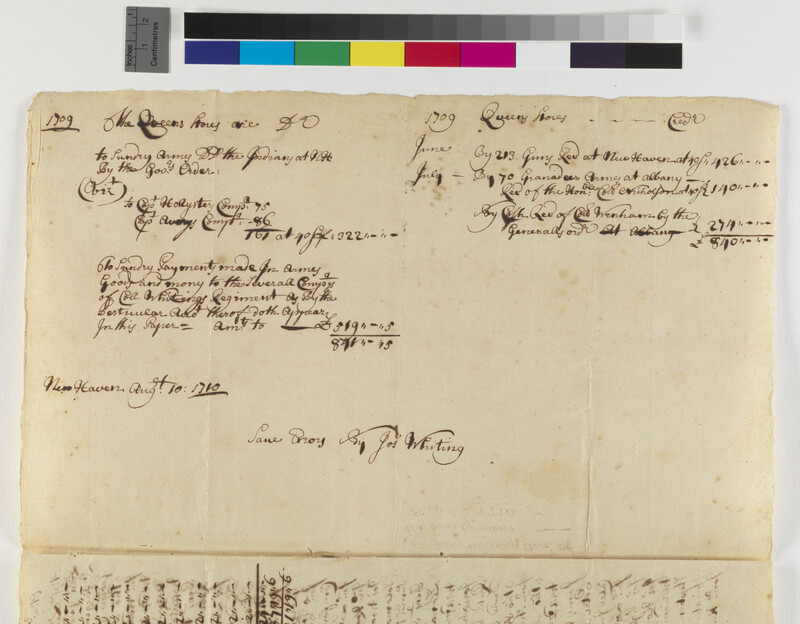 Inches
1
Centimetres
1 2
1709 The Queens stores are Dr
to Sundry Arms DD the Indians at NH
By the Govrs Order:
(Viz)
to Capt Hollyster Compa: 75
Capt Averys Compa: -86
161 at 40s £322,,-,,-
To Sundry Payments made In Arms
Goods and mony to the Severall Compas
of Coll Whitings Regiment as By the
perticular Accot therof doth Appeare
In this Paper = Amt to £519,,-,,5
841,,-,,5
New Haven Augt. 10: 1710
Save Errors By Jos Whiting
1709 Queens stores - - - - Credr
June By 213 Guns Recd at New Haven at 40s 426,,-,,-
July - By 70 Granadeer Arms at albany
Recd of the Honl Coll Nicholson at 40s £140,,-,,-
By Recd of Coll by the
Generalls ordr At Albany £ 274,,-,,-
£ 840,,-,,-